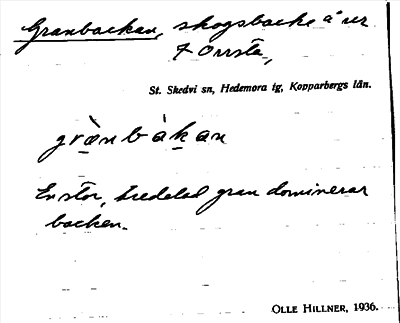 Granbackan, skogsbacke å ur
7 Orrsta,
St. Skedvi sn, Hedemora tg, Kopparbergs län.
grànbàkan
En stor, tredelad gran dominerar
backen.
OLLE HILLNER, 1936.